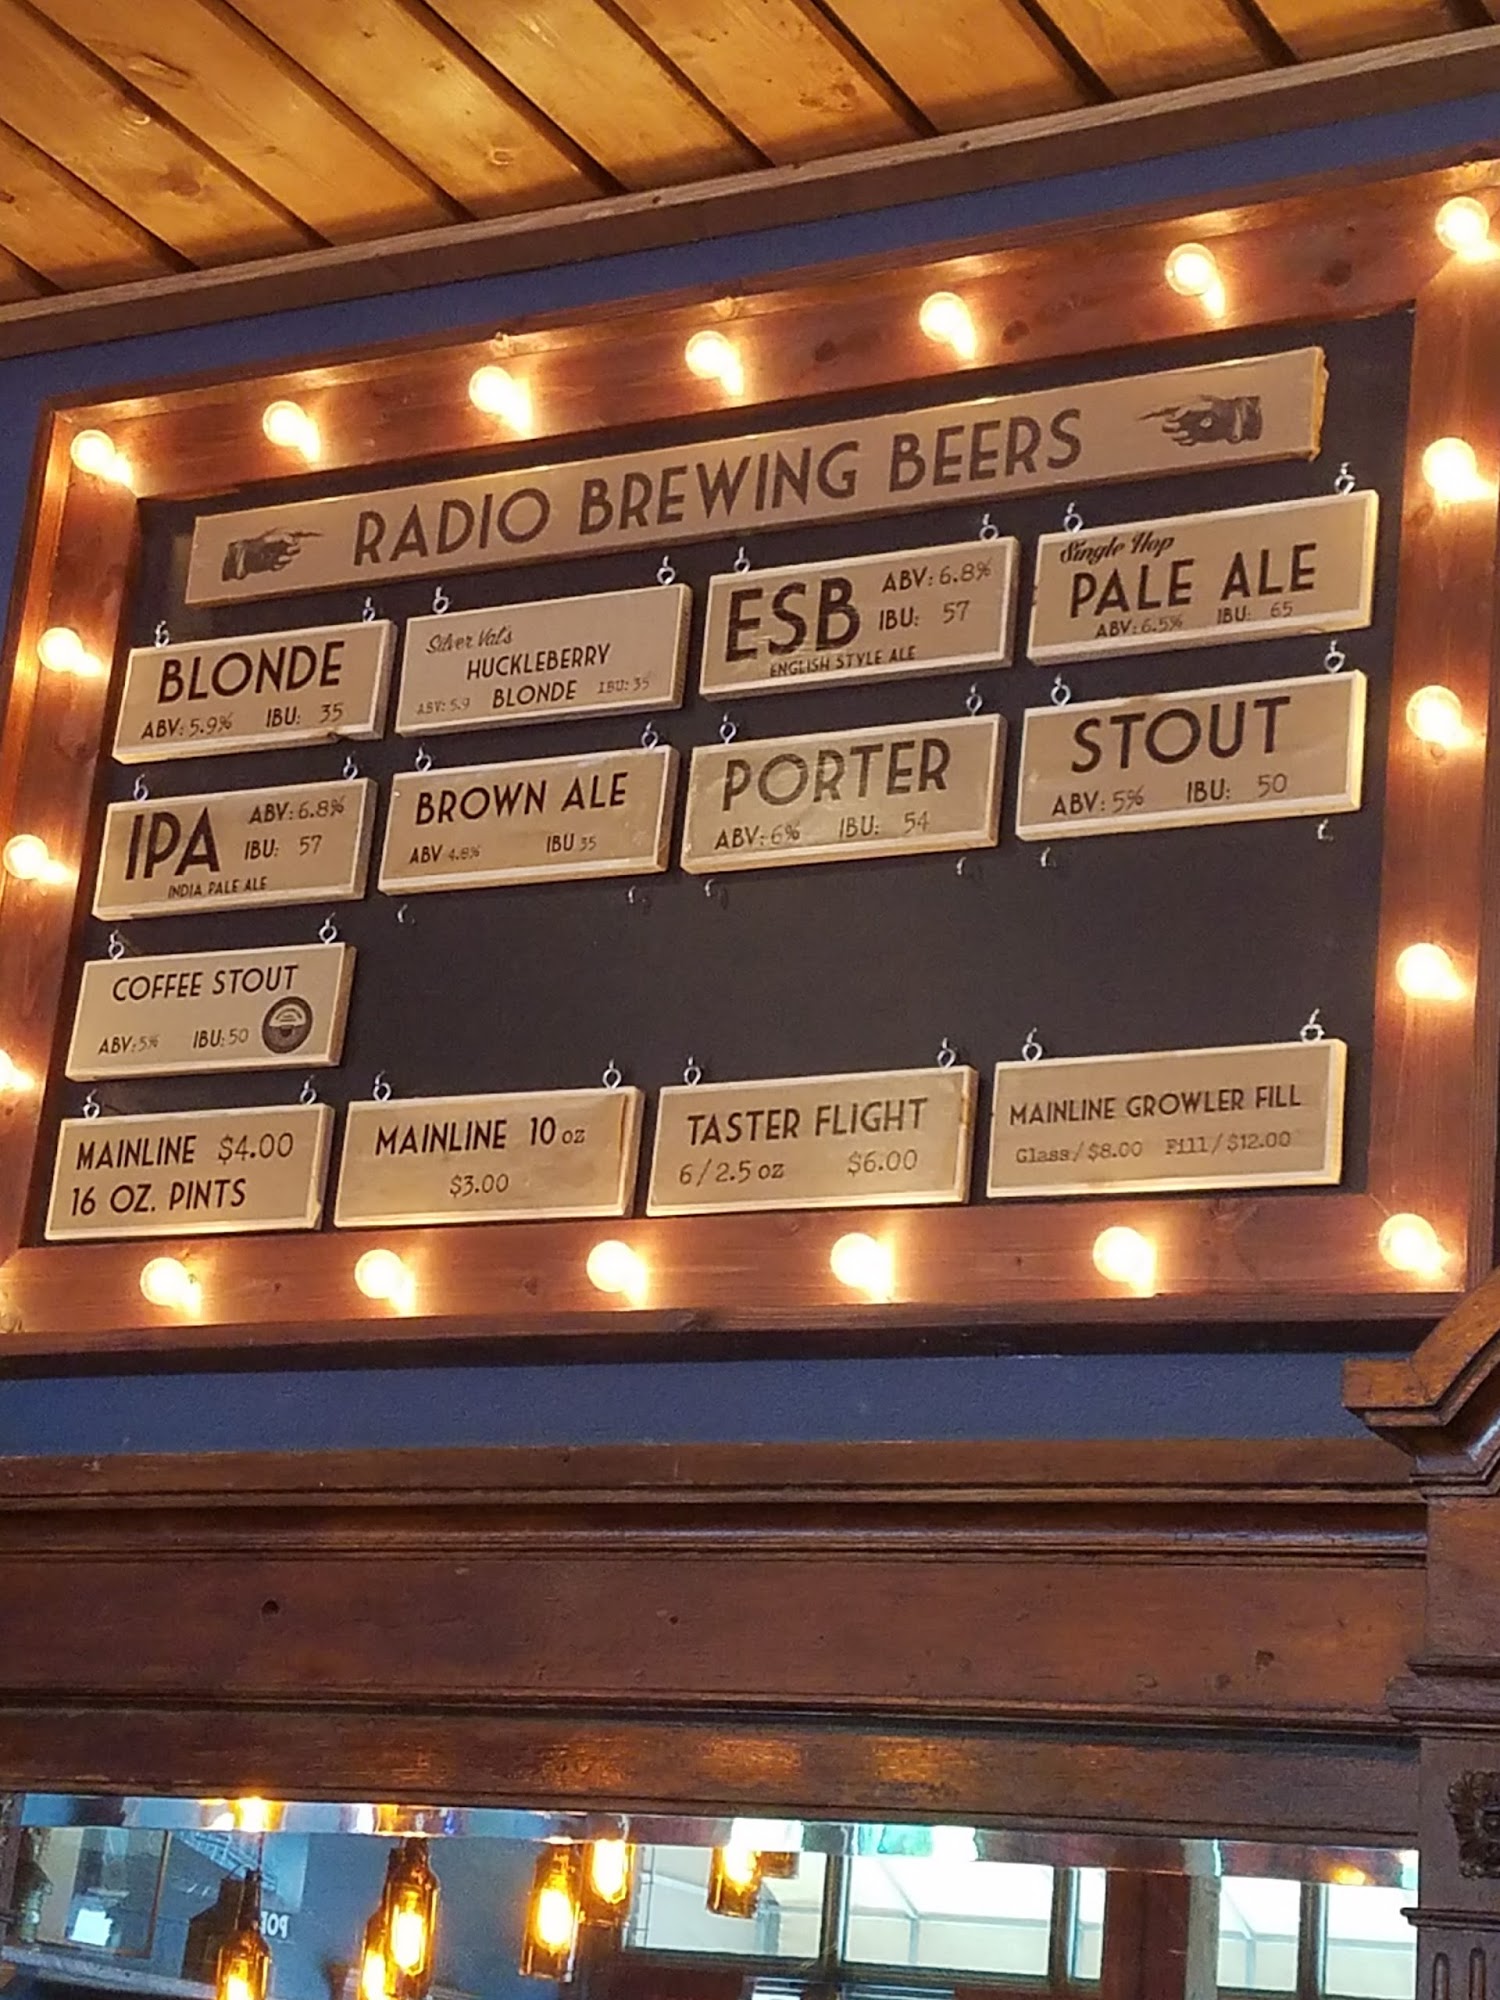 RADIO BREWING BEERS
BLONDE
ABV: 5.9% IBU: 35
Silver Val's
HUCKLEBERRY
BLONDE
ABV: 5.9 IBU: 35
ESB
ABV: 6.8%
IBU: 57
ENGLISH STYLE ALE
Single Hop
PALE ALE
ABV: 6.5% IBU: 65
IPA
ABV: 6.8%
IBU: 57
INDIA PALE ALE
BROWN ALE
ABV 4.8% IBU 35
PORTER
ABV: 6% IBU: 54
STOUT
ABV: 5% IBU: 50
COFFEE STOUT
ABV: 5% IBU: 50
MAINLINE $4.00
16 OZ. PINTS
MAINLINE 10 oz
$3.00
TASTER FLIGHT
6/2.5 oz $6.00
MAINLINE GROWLER FILL
Glass/$8.00 Fill/$12.00